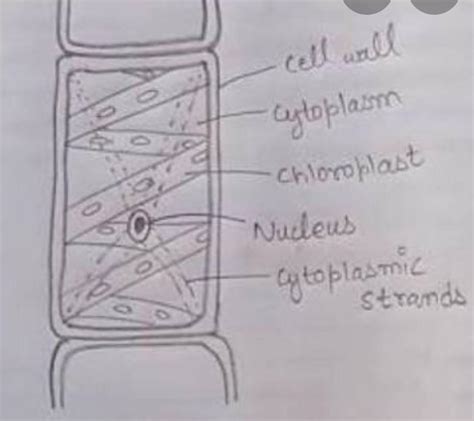 Cell wall
Cytoplasm
Chloroplast
Nucleus
Cytoplasmic
strands